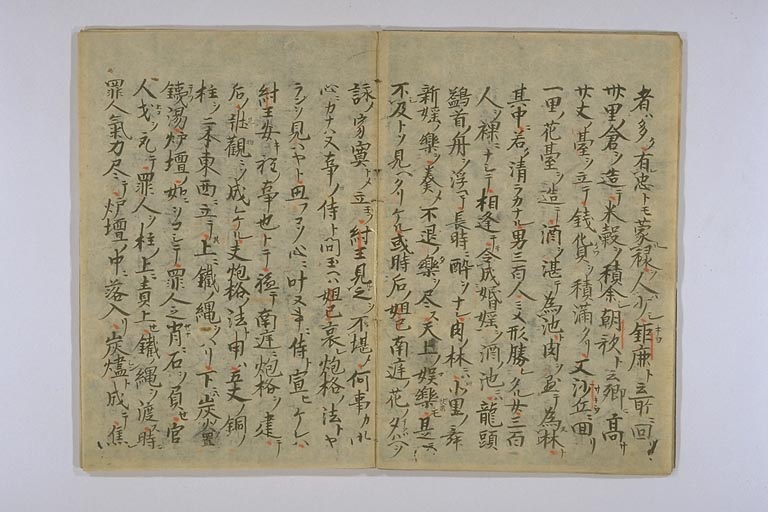 者ハ多ク有忠トモ蒙禄ノ人少シ鉅鹿ト云所ニ回
卅里ノ倉ヲ造テ米穀ヲ積余朝歌ト云郷ニ高サ
廿丈ノ臺ヲ立テ錢貨ヲ積満タリ又沙丘ニ回リ
一里ノ花臺ヲ造テ酒ヲ湛テ為池ト肉ヲ懸テ為林
其中ニ若ク清ラカナル男三百人ニ又形勝レタル女三百
人ヲ裸ニナシテ相逢テ令成婚姻ヲ酒池ニハ龍頭
鷁首ノ舟ヲ浮テ長時ニ酔ヲナシ肉ノ林ニハ北里ノ舞
新婬ノ樂ヲ奏メ不退ノ樂ヲ尽ス天上ノ娯樂モ是ニハ
不及トソ見ヘタリケル或時后ノ妲己南庭ノ花ノ夕バヘヲ
詠メ寂寞トメ立玉フ紂王見之ニ不堪メ何事カ御
心ニカナハヌ事ノ侍ト問玉ヘハ妲己哀レ炮烙ノ法トヤ
ランヲ見ハヤト思フコソ心ニ叶ヌ事ニ侍ト宣ヒケレハ
紂王安キ程事也トテ軈テ南庭ニ炮烙ヲ建テ
后ノ壮觀ニソ成レケル夫炮烙ノ法ト申ハ五丈ノ銅ノ
柱ヲ二本東西ニ立テ上ニ鐵ノ縄ヲハリ下ニ炭火ヲ置
鐵湯炉壇ノ如ニヲコシテ罪人之背ニ石ヲ負セ官
人戈ヲ礼テ罪人ヲ柱ノ上ニ責上セ鐵ノ縄ヲ渡ル時
罪人氣力尽テ炉壇ノ中ニ落入リ灰燼ト成テ焦